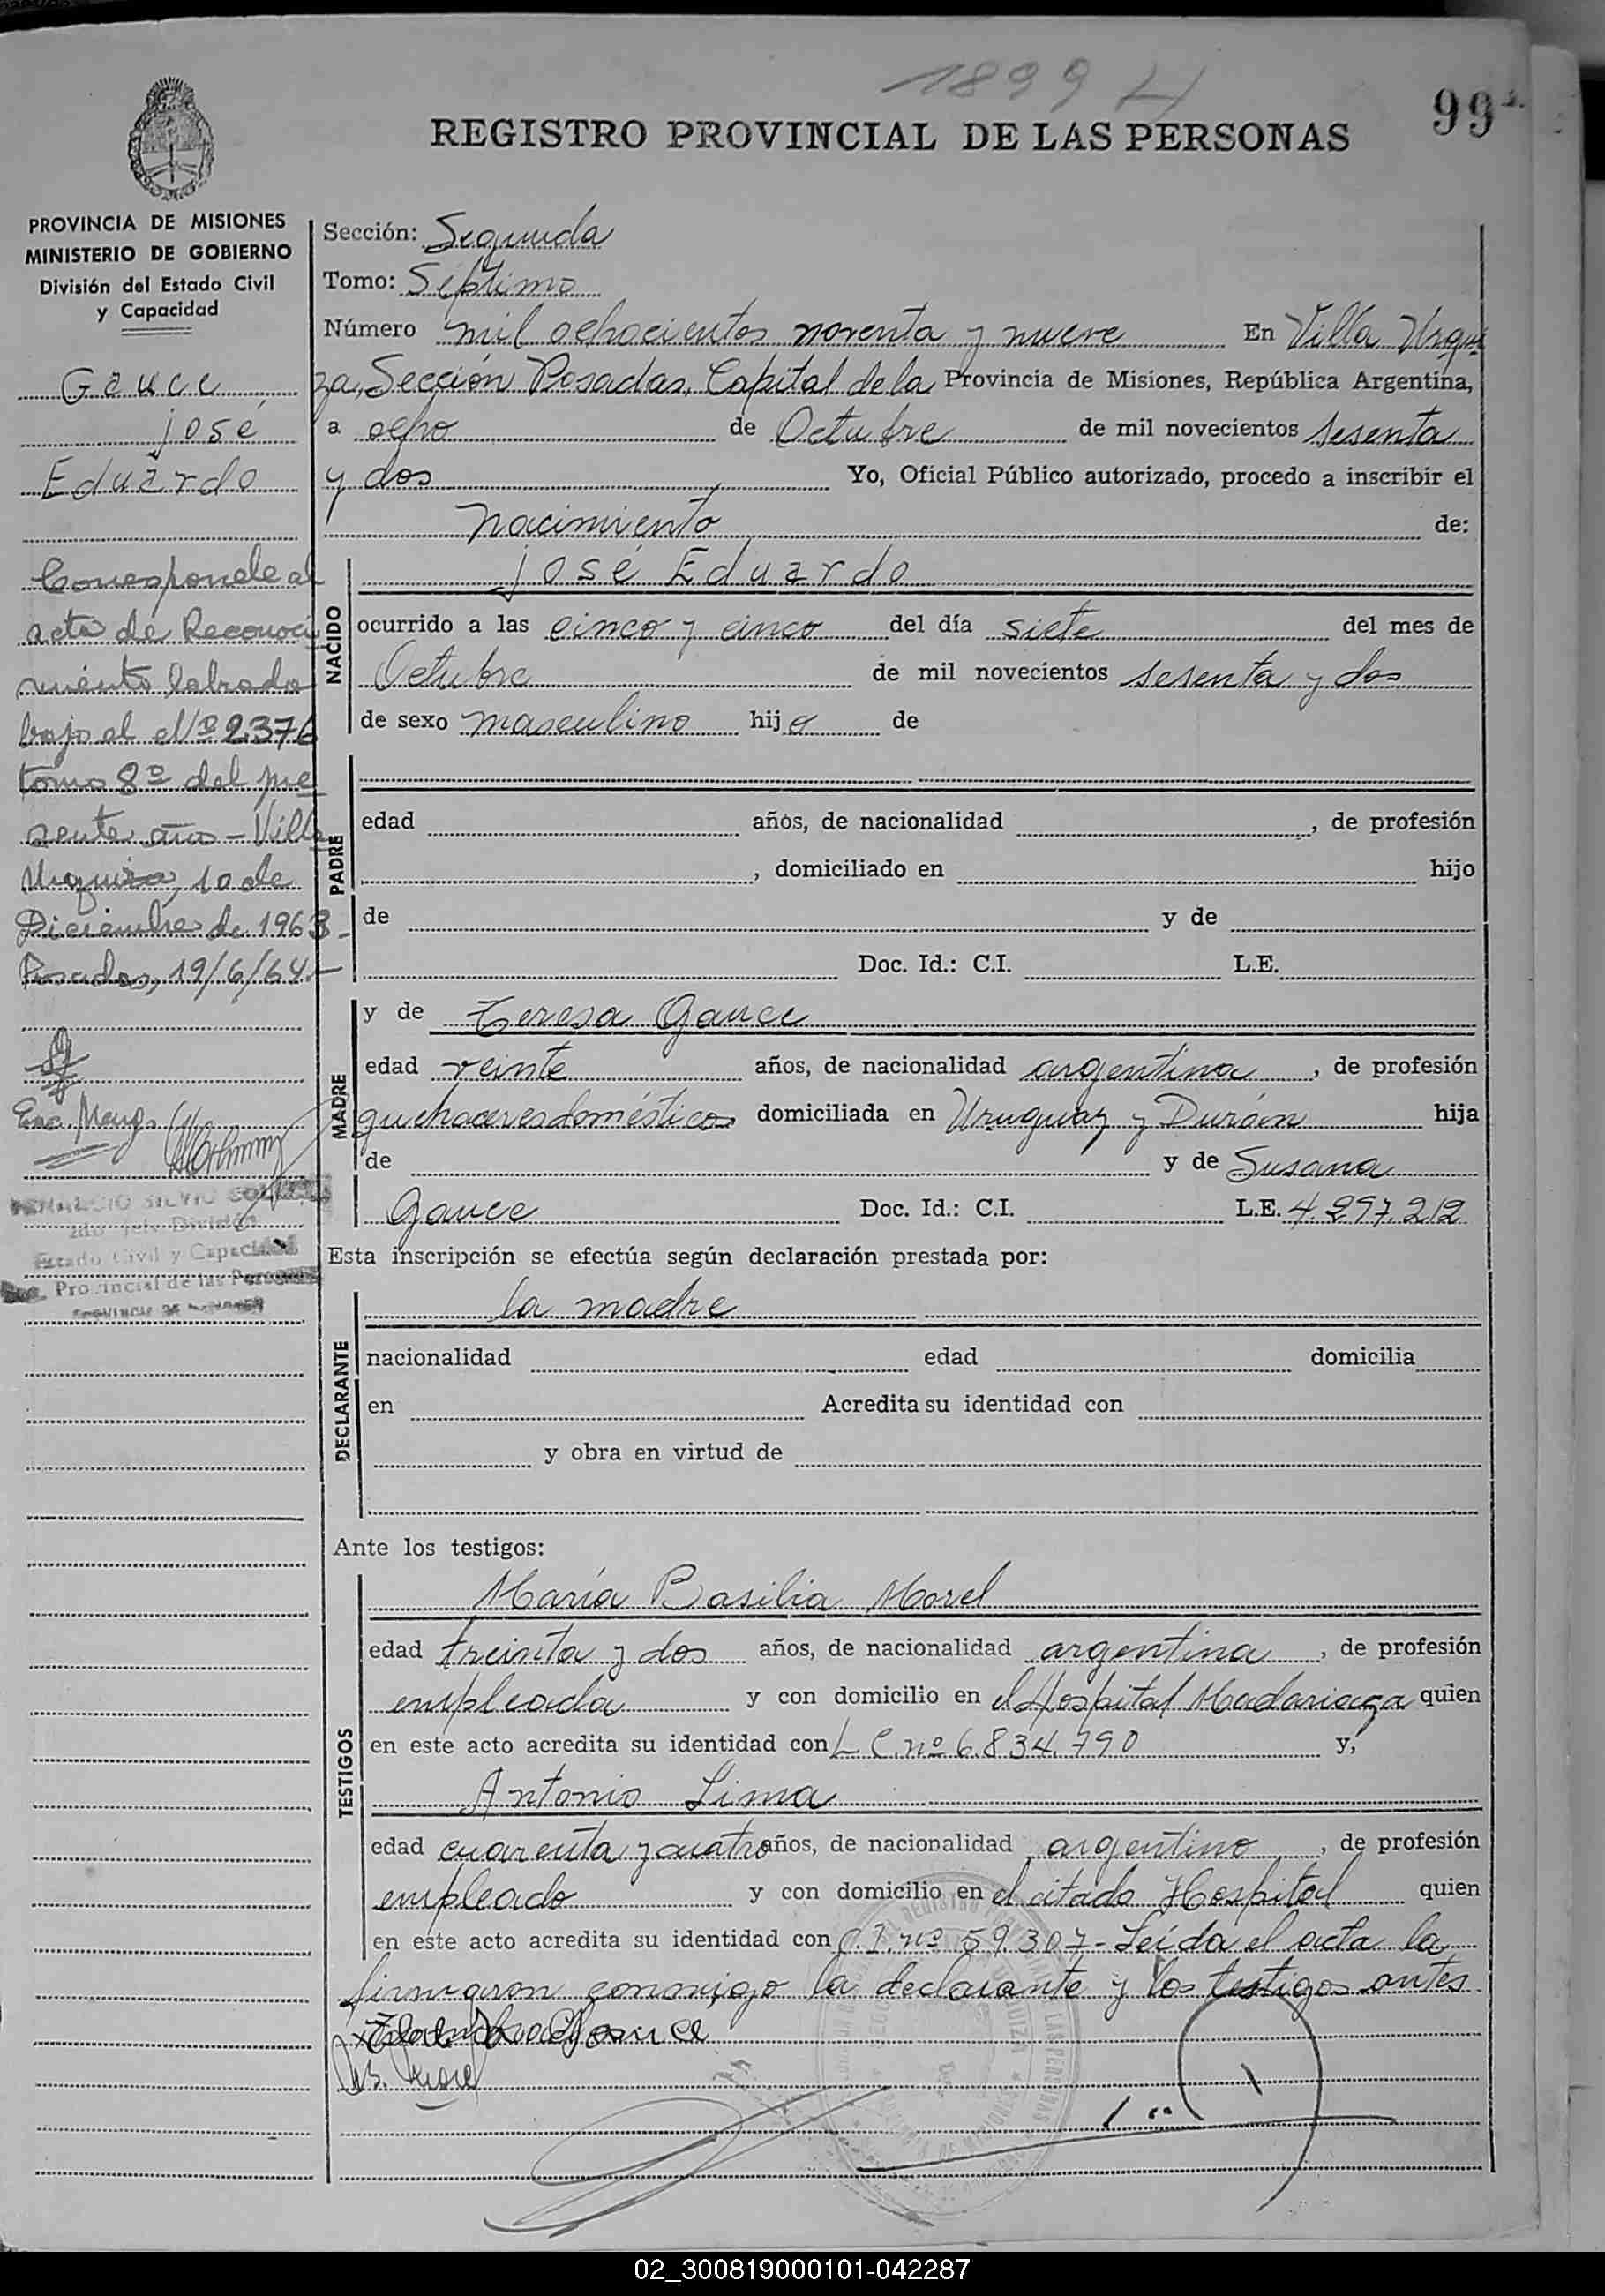 1899 H
99
REGISTRO PROVINCIAL DE LAS PERSONAS
PROVINCIA DE MISIONES
MINISTERIO DE GOBIERNO
División del Estado Civil
y Capacidad
Gauce
José
Eduardo
Corresponde al
acta de Reconoci
miento labrada
bajo al el Nº 2376
tomo 8º del pre
sente año - Villa
Urquiza, 10 de
Diciembre de 1963 -
Posadas, 19/6/64 -
Enc. Mang.
SILVIO
2do Jefe División
Estado Civil y Capacidad
Reg. Provincial de las Personas
PROVINCIA DE MISIONES
Sección: Segunda
Tomo: Séptimo
Número mil ochocientos noventa y nueve En Villa Urqui
za, Sección Posadas, Capital de la Provincia de Misiones, República Argentina,
a ocho de Octubre de mil novecientos sesenta
y dos Yo, Oficial Público autorizado, procedo a inscribir el
nacimiento de:
NACIDO
José Eduardo
ocurrido a las cinco y cinco del día siete del mes de
Octubre de mil novecientos sesenta y dos
de sexo masculino hijo de
PADRE
edad años, de nacionalidad , de profesión
, domiciliado en hijo
de y de
Doc. Id.: C.I. L.E.
MADRE
y de Teresa Gauce
edad veinte años, de nacionalidad argentina , de profesión
quehaceres domésticos domiciliada en Uruguay y Durán hija
de y de Susana
Gauce Doc. Id.: C.I. L.E. 4.297.212
Esta inscripción se efectúa según declaración prestada por:
DECLARANTE
la madre
nacionalidad edad domicilia
en Acredita su identidad con
y obra en virtud de
Ante los testigos:
TESTIGOS
María Basilia Morel
edad treinta y dos años, de nacionalidad argentina , de profesión
empleada y con domicilio en el Hospital Madariaga quien
en este acto acredita su identidad con L.C. nº 6.834.790 y,
Antonio Lima
edad cuarenta y cuatro años, de nacionalidad argentino , de profesión
empleado y con domicilio en el citado Hospital quien
en este acto acredita su identidad con C.I. nº 59.307 - Leída el acta la
firmaron conmigo la declarante y los testigos antes
Gauce
B. Morel
02_300819000101-042287